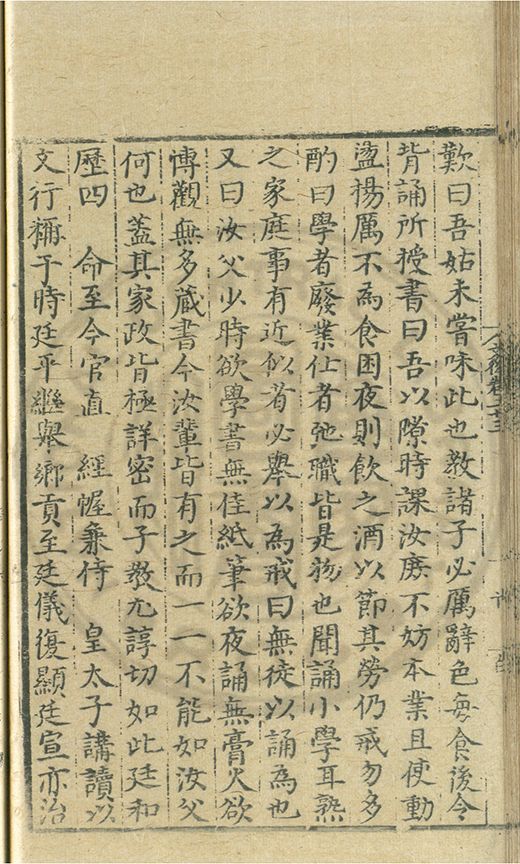 歎曰吾姑未嘗味此也教諸子必厲辭色每食後令
背誦所授書曰吾以隙時課汝庶不妨本業且使動
盪揚厲不為食困夜則飲之酒以節其勞仍戒勿多
酌曰學者廢業仕者弛職皆是物也聞誦小學耳熟
之家庭事有近似者必舉以為戒曰無徒以誦為也
又曰汝父少時欲學書無佳紙筆欲夜誦無膏火欲
博觀無多蔵書今汝輩皆有之而一一不能如汝父
何也蓋其家政皆極詳密而子教尤諄切如此廷和
歷四 命至今官直 經幄兼侍 皇太子講讀以
文行稱于時廷平繼舉鄉貢至廷儀復顯廷宣亦治